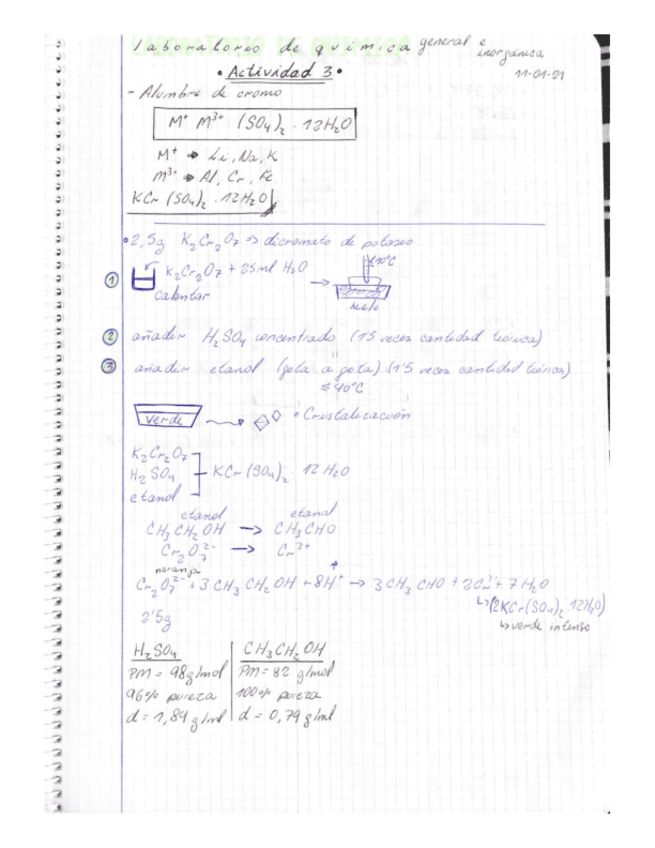 laboratorio de química general e inorgánica
• Actividad 3 •
11-01-21
- Alumbre de cromo
M⁺ M³⁺ (SO₄)₂ · 12H₂O
M⁺ → Li, Na, K
M³⁺ → Al, Cr, Fe
KCr (SO₄)₂ · 12H₂O
• 2,5g K₂Cr₂O₇ => dicromato de potasio
① K₂Cr₂O₇ + 25ml H₂O →
calentar
10°C
hielo
② añadir H₂SO₄ concentrado (1'5 veces cantidad teórica)
③ añadir etanol (gota a gota) (1'5 veces cantidad teórica)
≤ 40°C
verde
• Cristalización
K₂Cr₂O₇
H₂SO₄ KCr (SO₄)₂ · 12 H₂O
etanol
etanol etanal
CH₃CH₂OH → CH₃CHO
Cr₂O₇²⁻ → Cr³⁺
naranja
Cr₂O₇²⁻ + 3 CH₃CH₂OH + 8H⁺ → 3CH₃CHO + 2Cr³⁺ + 7H₂O
↳ (2KCr(SO₄)₂ 12H₂O)
2'5g
↳ verde intenso
H₂SO₄ CH₃CH₂OH
PM = 98g/mol PM = 82 g/mol
96% pureza 100% pureza
d = 1,84 g/ml d = 0,79 g/ml